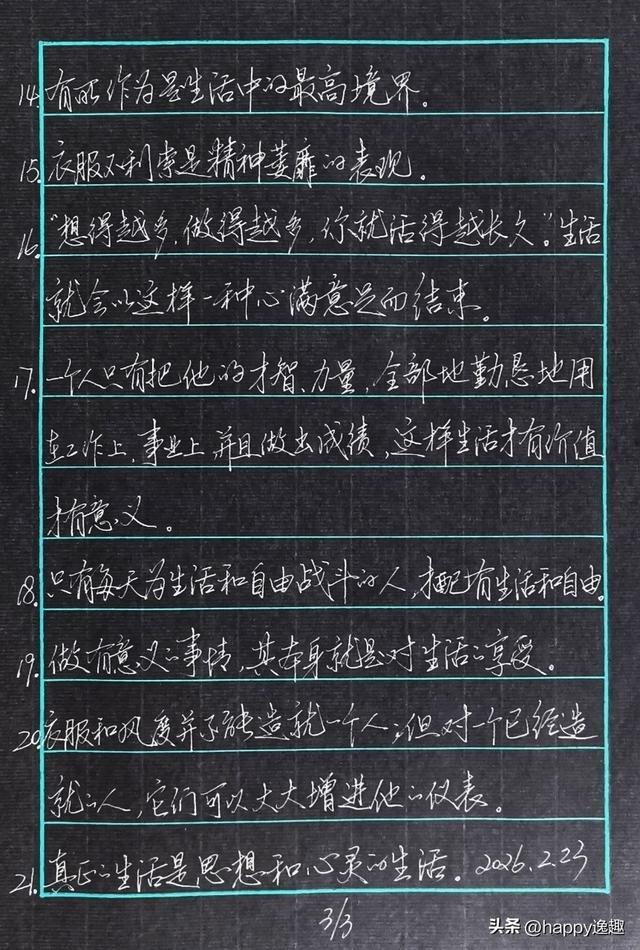 14. 有所作为是生活中的最高境界。
15. 衣服不利索是精神萎靡的表现。
16. “想得越多,做得越多,你就活得越长久。”生活
就会以这样一种心满意足而结束。
17. 一个人只有把他的才智、力量,全部地勤恳地用
在工作上,事业上,并且做出成绩,这样生活才有价值
才有意义。
18. 只有每天为生活和自由战斗的人,才配有生活和自由。
19. 做有意义的事情,其本身就是对生活的享受。
20. 衣服和风度并不能造就一个人;但对一个已经造
就的人,它们可以大大增进他的仪表。
21. 真正的生活是思想和心灵的生活。2026.2.23
3/3
头条 @happy逸趣